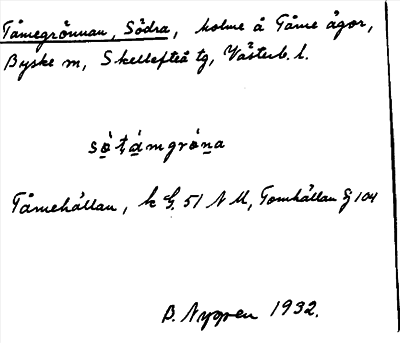 Tåmegrönnan, Södra, holme å Tåme ågor,
Byske sn, Skellefteå tg, Västerb. l.
sö̀tåmgröna
Tåmehällan, k G. 51 N M, Tomhällan Gj 104
B. Nygren 1932.